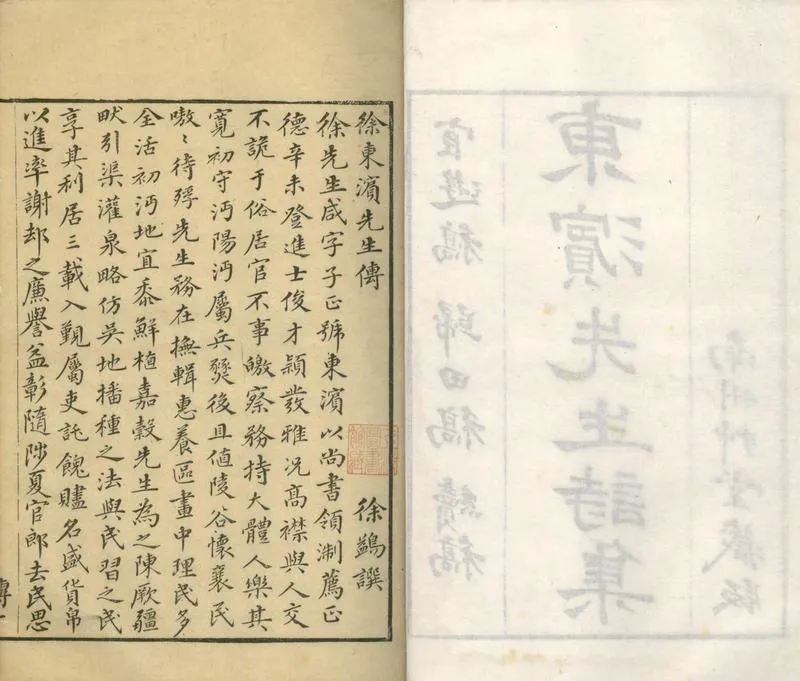 東濱先生詩集
宦遊稿 歸田稿 續稿
徐東濱先生傳 徐鷁譔
徐先生咸字子正號東濱以尚書領淛薦正
德辛未登進士俊才穎發雅況高襟與人交
不詭于俗居官不事皦察務持大體人樂其
寬初守沔陽沔屬兵燹後且值陵谷懷襄民
嗷〻待殍先生務在撫輯惠養區畫中理民多
全活初沔地宜黍鮮植嘉穀先生為之陳厥疆
畎引渠灌泉略仿吳地播種之法與民習之民
享其利居三載入覲屬吏託餽贐名盛貨帛
以進率謝却之廉譽益彰隨陟夏官郎去民思
傳一